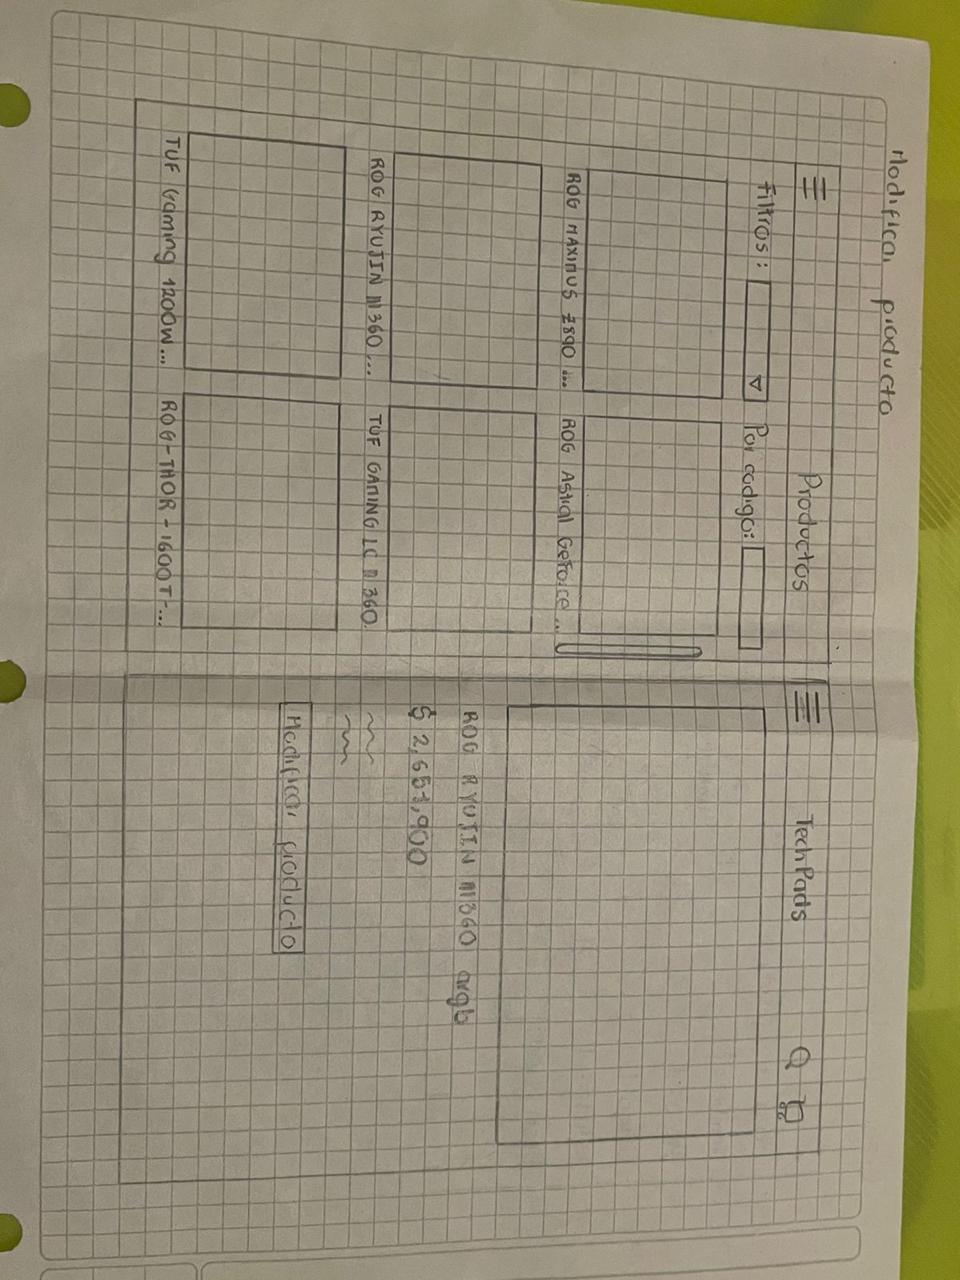 Modificar producto
Productos
Filtros: Por codigo:
ROG MAXIMUS Z890 ...
ROG Astral Geforce ...
ROG RYUJIN III 360 ...
TUF GAMING LC III 360.
TUF Gaming 1200W...
ROG-THOR-1600T-...
TechPads
ROG RYUJIN III 360 argb
$ 2,651,900
Modificar producto